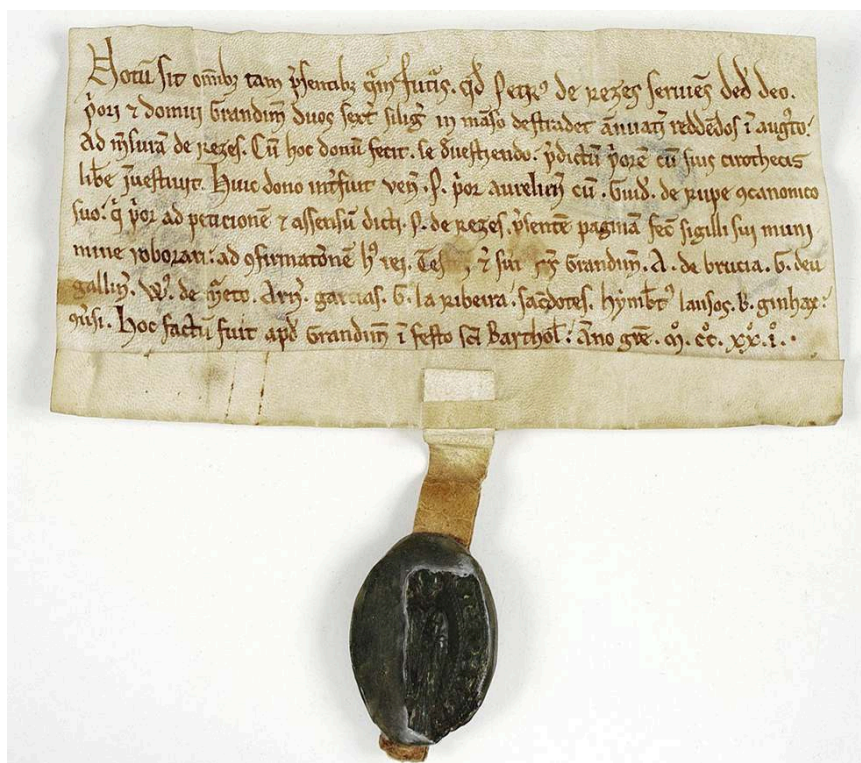 Notũ sit om̃ibȝ tam p̃sentibȝ q̃m fut̃is. qd̃ Petrꝰ de rezes seruiẽs ded̃ deo.
p̃ori ⁊ domui Grandim̃ duos sext̃ silig̃ in mãso destradet ãnuatĩ reddẽdos ĩ aug̃to:
Ad m̃surã de rezes. Cũ hoc donũ fecit. se d̃uestiendo. p̃dictũ p̃orẽ cũ suis cirothecis
lib̃e ĩuestiuit. Huic dono int̃fuit veñ. P. p̃or aurelieñ cũ. Guid̃. de rupe ꝯcanonico
suo: q̃ p̃or ad peticionẽ ⁊ assensũ dicti. P. de rezes. p̃sentẽ paginã fec̃ sigilli sui muni
mine roborari: ad ꝯfirmat̃onẽ hꝰ rei. ⁊ sũt Grandim̃. A. de brucia. G. deu
gallieñ. W. de m̃eto. garcias. G. la Ribeira. sac̃dotes. hymb̃tꝰ lausos. B. ginhax:
Hoc factũ fuit apd̃ Grandim̃ ĩ festo sc̃i Barthol̃: Ãno gr̃e. m̊. cc̊. xx̊. i̊.